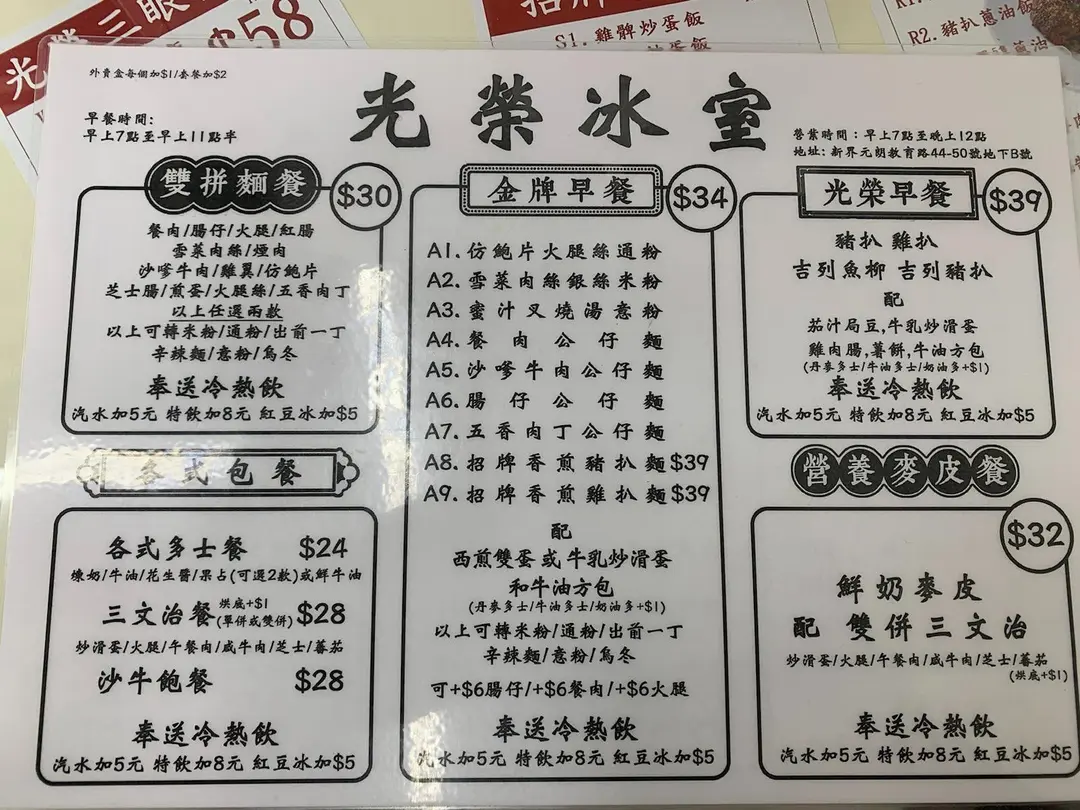 光榮三眼
$58
招牌
S1. 雞髀炒蛋飯
R2. 豬扒蔥油飯
外賣盒每個加$1/套餐加$2
早餐時間:
早上7點至早上11點半
光榮冰室
營業時間：早上7點至晚上12點
地址: 新界元朗教育路44-50號地下B號
雙拼麵餐 $30
餐肉/腸仔/火腿/紅腸
雪菜肉絲/煙肉
沙嗲牛肉/雞翼/仿鮑片
芝士腸/煎蛋/火腿絲/五香肉丁
以上任選兩款
以上可轉米粉/通粉/出前一丁
辛辣麵/意粉/烏冬
奉送冷熱飲
汽水加5元 特飲加8元 紅豆冰加$5
各式包餐
各式多士餐 $24
煉奶/牛油/花生醬/果占(可選2款)或鮮牛油
三文治餐 烘底+$1 (單併或雙併) $28
炒滑蛋/火腿/午餐肉/咸牛肉/芝士/蕃茄
沙牛飽餐 $28
奉送冷熱飲
汽水加5元 特飲加8元 紅豆冰加$5
金牌早餐 $34
A1. 仿鮑片火腿絲通粉
A2. 雪菜肉絲銀絲米粉
A3. 蜜汁叉燒湯意粉
A4. 餐肉公仔麵
A5. 沙嗲牛肉公仔麵
A6. 腸仔公仔麵
A7. 五香肉丁公仔麵
A8. 招牌香煎豬扒麵$39
A9. 招牌香煎雞扒麵$39
配
西煎雙蛋或牛乳炒滑蛋
和牛油方包
(丹麥多士/牛油多士/奶油多+$1)
以上可轉米粉/通粉/出前一丁
辛辣麵/意粉/烏冬
可+$6腸仔/+$6餐肉/+$6火腿
奉送冷熱飲
汽水加5元 特飲加8元 紅豆冰加$5
光榮早餐 $39
豬扒 雞扒
吉列魚柳 吉列豬扒
配
茄汁局豆,牛乳炒滑蛋
雞肉腸,薯餅,牛油方包
(丹麥多士/牛油多士/奶油多士+$1)
奉送冷熱飲
汽水加5元 特飲加8元 紅豆冰加$5
營養麥皮餐
$32
鮮奶麥皮
配 雙併三文治
炒滑蛋/火腿/午餐肉/咸牛肉/芝士/蕃茄
(烘底+$1)
奉送冷熱飲
汽水加5元 特飲加8元 紅豆冰加$5